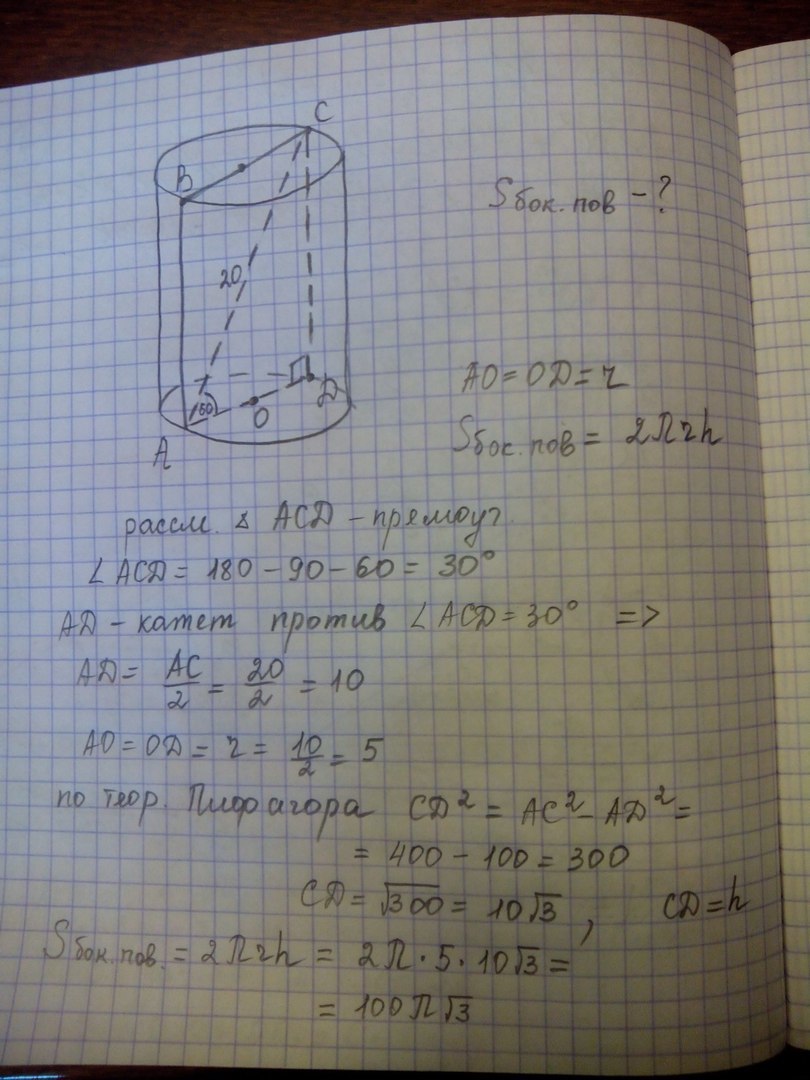 C
B
Sбок. пов - ?
20
AO = OD = r
60
O
D
A
Sбок. пов = 2πrh
рассм. △ ACD - прямоуг.
∠ACD = 180 - 90 - 60 = 30°
AD - катет против ∠ACD = 30° =>
AD = AC/2 = 20/2 = 10
AO = OD = r = 10/2 = 5
по теор. Пифагора CD² = AC² - AD² =
= 400 - 100 = 300
CD = √300 = 10√3 , CD = h
Sбок. пов. = 2πrh = 2π · 5 · 10√3 =
= 100π√3